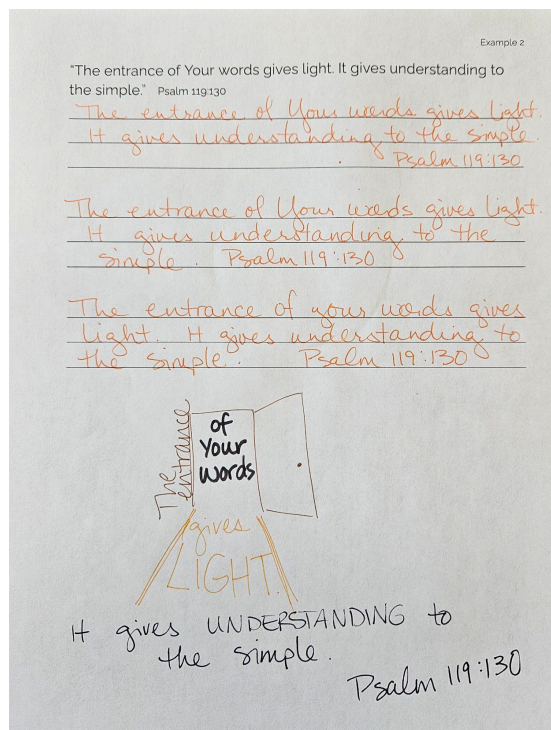 Example 2
“The entrance of Your words gives light. It gives understanding to
the simple.” Psalm 119:130
The entrance of Your words gives light.
It gives understanding to the simple.
Psalm 119:130
The entrance of Your words gives light.
It gives understanding to the
simple. Psalm 119:130
The entrance of your words gives
light. It gives understanding to
the simple. Psalm 119:130
The
entrance
of
Your
words
gives
LIGHT.
It gives UNDERSTANDING to
the simple.
Psalm 119:130